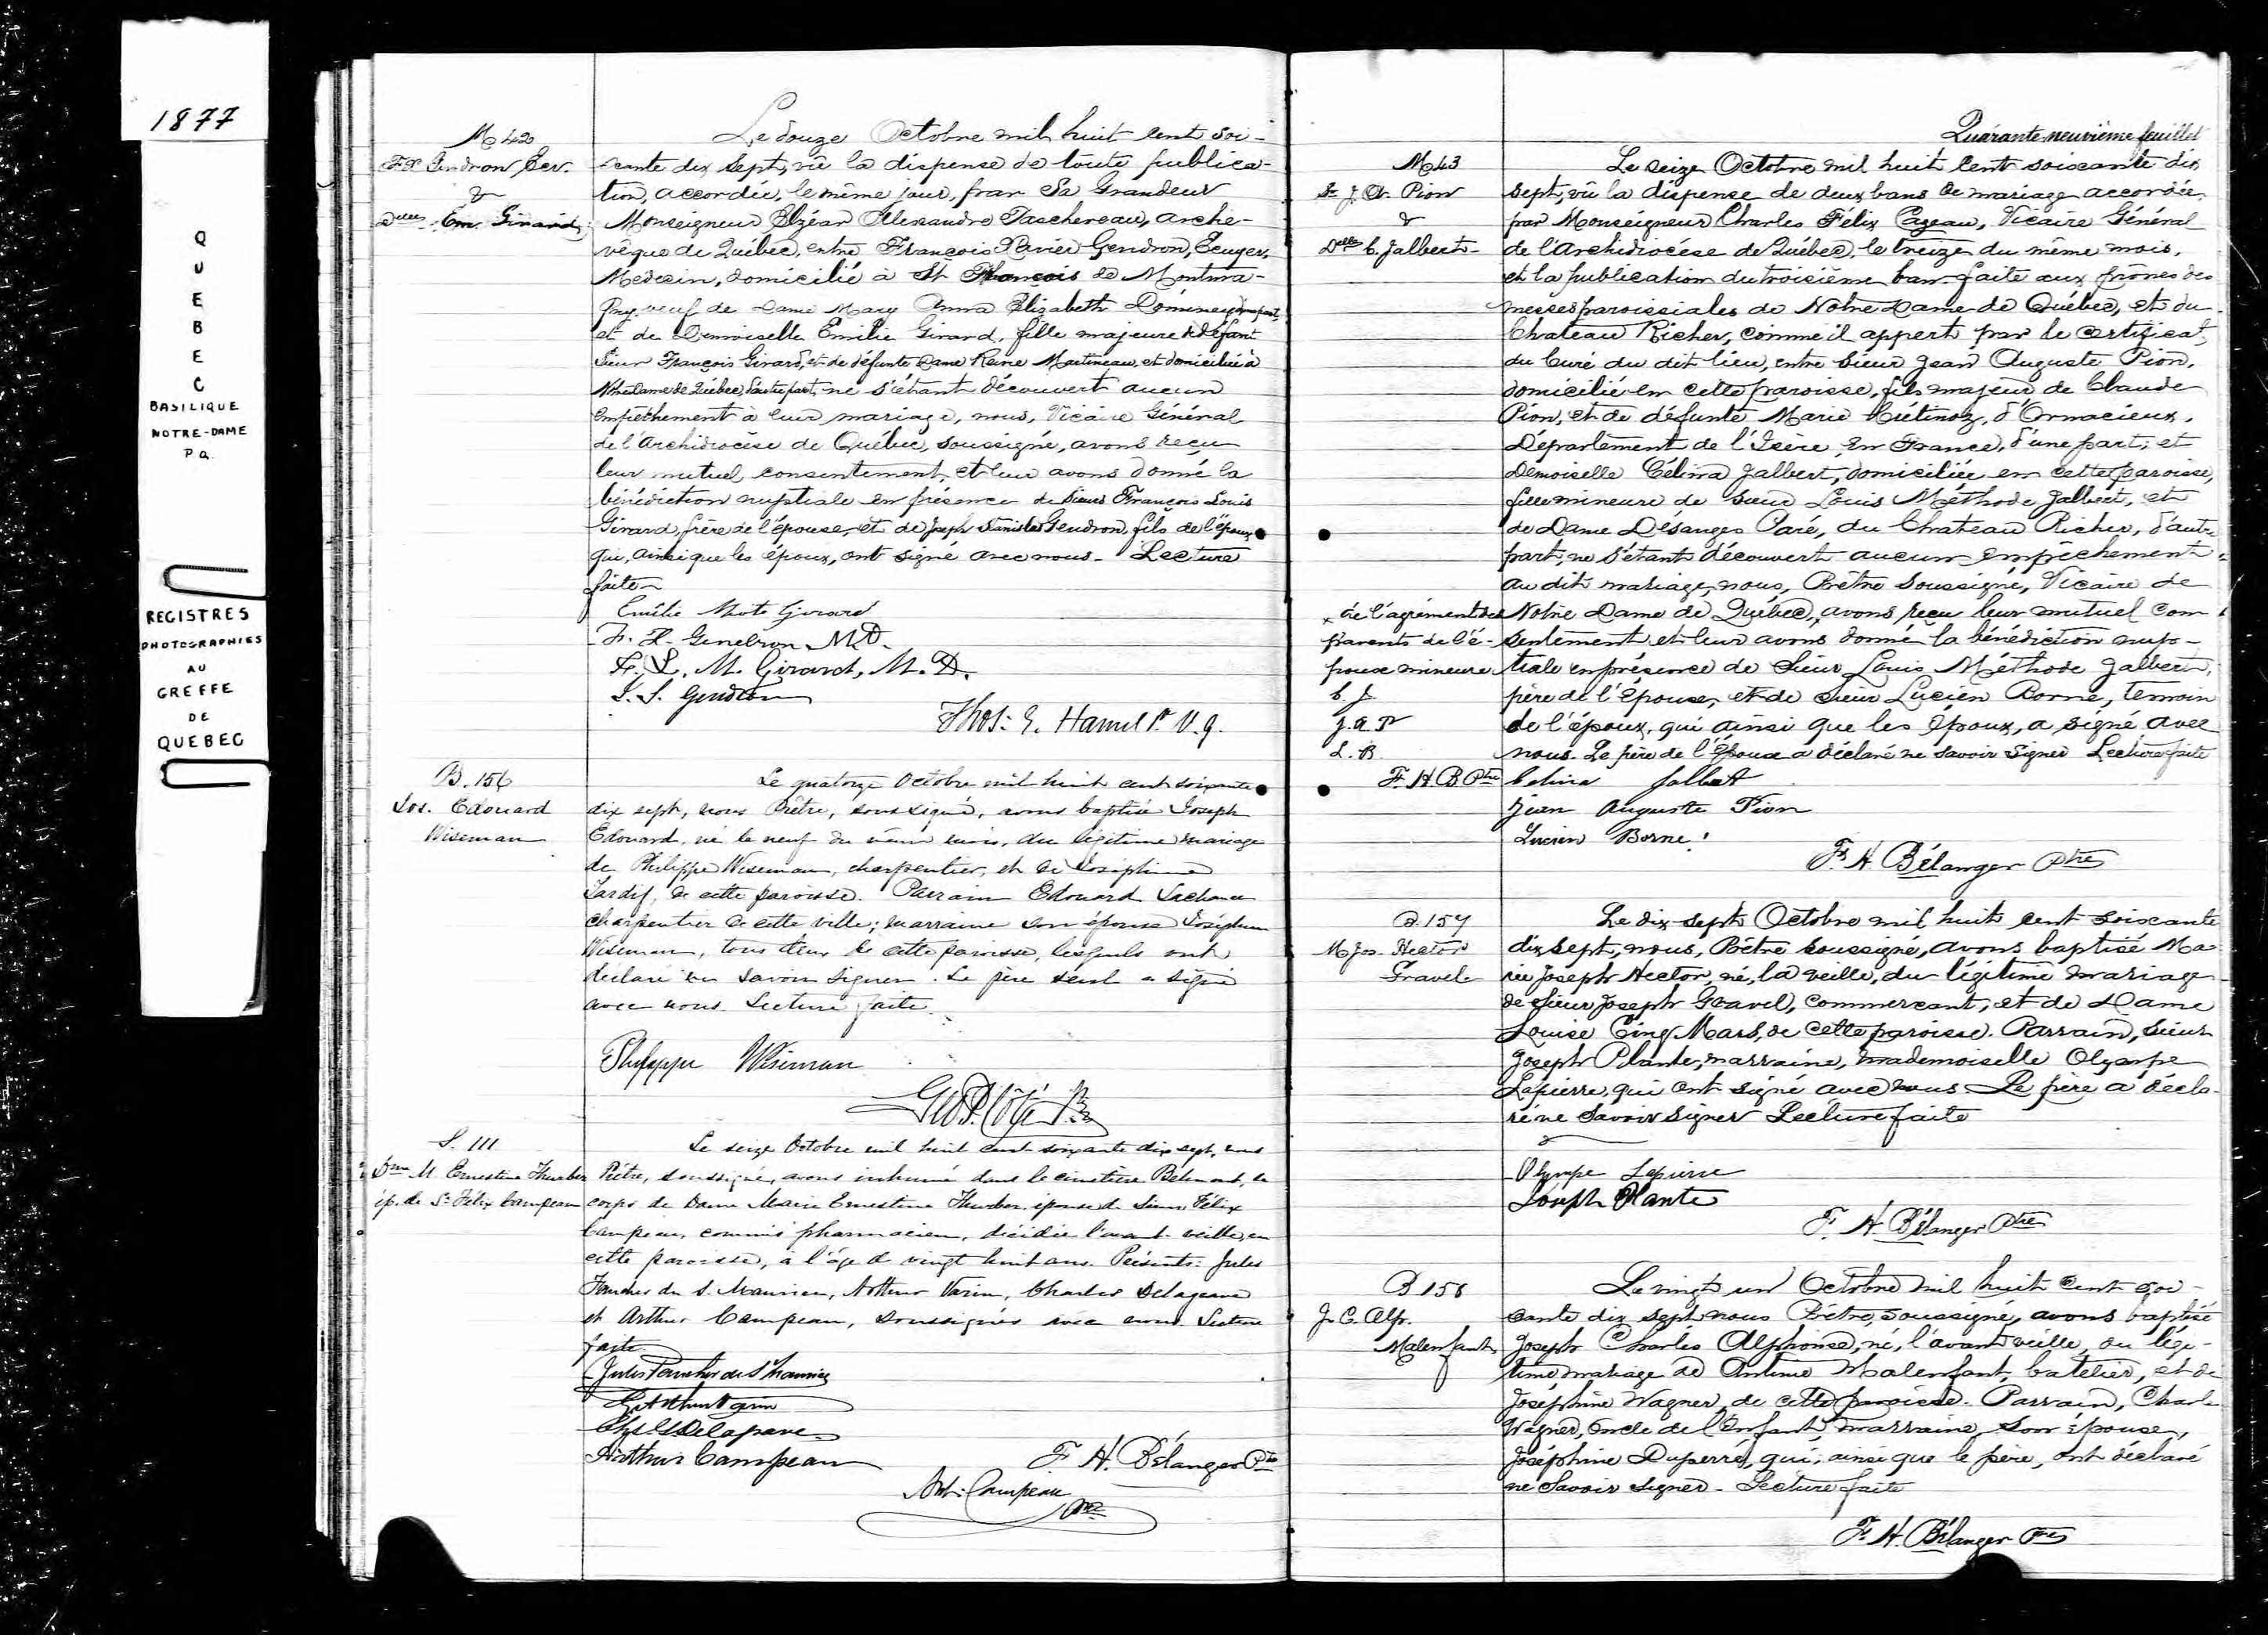 1877
QUEBEC
BASILIQUE
NOTRE-DAME
P.Q.
REGISTRES
PHOTOGRAPHIES
AU
GREFFE
DE
QUEBEC
M 42
F.X. Gendron Ecr.
&
Delle Em. Girard
Le douze Octobre mil huit cent soi-
xante dix sept, vû la dispense de toute publica-
tion, accordée, le même jour, par Sa Grandeur
Monseigneur Elzéar Alexandre Taschereau, arche-
vêque de Québec, entre François Xavier Gendron, Ecuyer,
Médecin, domicilié à St François de Montma-
gny, veuf de Dame Mary Anna Elizabeth d'une part,
et de Demoiselle Emilie Girard, fille majeure de défunt
Sieur François Girard, et de défunte Dame Reine Martineau, et domiciliée à
Notre Dame de Québec, d'autre part, ne s'étant découvert aucun
empêchement à leur mariage, nous, Vicaire Général
de l'Archidiocèse de Québec, soussigné, avons reçu
leur mutuel consentement, et leur avons donné la
bénédiction nuptiale en présence de Sieurs François Louis
Girard, frère de l'épouse, et de Joseph Stanislas Gendron, fils de l'époux
qui, ainsi que les époux, ont signé avec nous. Lecture
faite
Emilie Girard
F. X. Gendron M.D.
F. L. M. Girard, M.D.
J. S. Gendron
Thos: E. Hamel Pr V.G.
B. 156
Jos. Edouard
Wiseman
Le quatorze Octobre mil huit cent soixante
dix sept, nous Prêtre, soussigné, avons baptisé Joseph
Edouard, né le neuf du même mois, du légitime mariage
de Philippe Wiseman, charpentier, et de Joséphine
Tardif, de cette paroisse. Parrain Edouard Lachance
charpentier de cette ville; marraine son épouse Joséphine
Wiseman, tous deux de cette paroisse, lesquels ont
déclaré ne savoir signer. Le père seul a signé
avec nous. Lecture faite.
Philippe Wiseman
Geo. P. Côté Ptre
S. 111
Dme M. Ernestine Thurber
ép. de Sr Félix Campeau
Le seize Octobre mil huit cent soixante dix sept, nous
Prêtre, soussigné, avons inhumé dans le cimetière Belmont, le
corps de Dame Marie Ernestine Thurber, épouse de Sieur Félix
Campeau, commis pharmacien, décédée l'avant-veille, en
cette paroisse, à l'âge de vingt huit ans. Présents: Jules
Foucher de St Maurice, Arthur Varin, Charles Delagrave
et Arthur Campeau, soussignés avec nous. Lecture
faite.
Jules Foucher de St Maurice
Arthur Varin
Chs Delagrave
Arthur Campeau
F. H. Bélanger Ptre
Ant: Campeau Ptre
Quarante neuvième feuillet
M 43
Sr J. A. Pion
&
Delle C. Jalbert
Le seize Octobre mil huit cent soixante dix
sept, vû la dispense de deux bans de mariage accordée
par Monseigneur Charles Félix Cazeau, Vicaire Général
de l'Archidiocèse de Québec, le treize du même mois,
et la publication du troisième ban faite aux prônes des
messes paroissiales de Notre Dame de Québec, et du
Chateau Richer, comme il appert par le certificat
du Curé du dit lieu, entre Sieur Jean Auguste Pion,
domicilié en cette paroisse, fils majeur de Claude
Pion, et de défunte Marie d'Ornacieux,
Département de l'Isère, en France, d'une part; et
Demoiselle Célina Jalbert, domiciliée en cette paroisse,
fille mineure de Sieur Louis Méthode Jalbert, et
de Dame Désanges Paré, du Chateau Richer, d'autre
part; ne s'étant découvert aucun empêchement
au dit mariage, nous, Prêtre soussigné, Vicaire de
Notre Dame de Québec, avons reçu leur mutuel con
sentement et leur avons donné la bénédiction nup-
tiale en présence de Sieur Louis Méthode Jalbert,
père de l'épouse, et de Sieur Lucien Borne, témoin
de l'époux, qui ainsi que les époux, a signé avec
nous. Le père de l'épouse a déclaré ne savoir signer Lecture faite
x de l'agrément des
parents de l'é-
pouse mineure
C. J.
J. A. P
L. B.
F. H. B Ptre
Celina Jalbert
Jean Auguste Pion
Lucien Borne
F. H. Bélanger Ptre
B 157
M Jos. Hector
Gravel
Le dix-sept Octobre mil huit cent soixante
dix sept, nous, Prêtre soussigné, avons baptisé Ma-
rie Joseph Hector, né, la veille, du légitime mariage
de Sieur Joseph Gravel, commerçant, et de Dame
Louise Cinq Mars, de cette paroisse. Parrain, Sieur
Joseph Plante, marraine, mademoiselle Olympe
Lapierre, qui ont signé avec nous. Le père a décla-
ré ne savoir signer Lecture faite
Olympe Lapierre
Joseph Plante
F. H. Bélanger Ptre
B 158
J. C. Alp.
Malenfant
Le vingt un Octobre mil huit cent soi-
xante dix sept nous Prêtre, soussigné, avons baptisé
Joseph Charles Alphonse, né, l'avant veille, du légi-
time mariage de Antime Malenfant, batelier, et de
Joséphine Wagner, de cette paroisse. Parrain, Charles
Wagner, oncle de l'enfant, marraine, son épouse,
Joséphine Duperré, qui, ainsi que le père, ont déclaré
ne savoir signer - Lecture faite
F. H. Bélanger Ptre